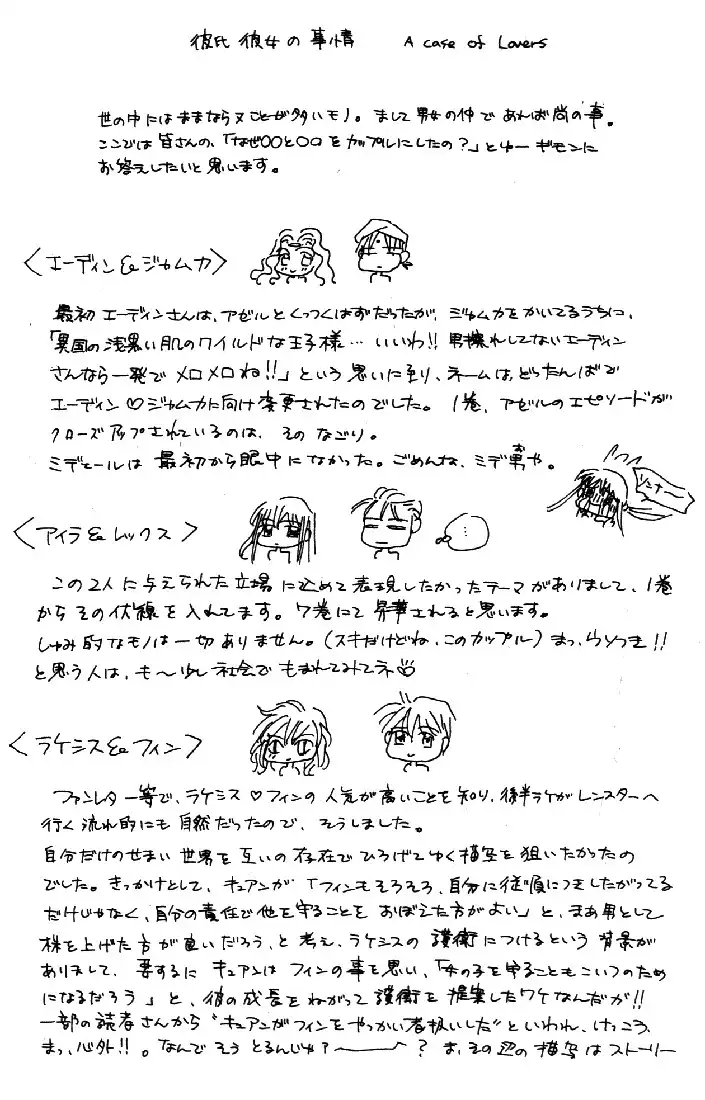 彼氏彼女の事情 A case of Lovers
世の中にはままならヌことが多いモノ。まして男女の仲であれば尚の事。
ここでは皆さんの、「なぜ○○と○○をカップルにしたの?」とゆーギモンに
お答えしたいと思います。
〈エーディン&ジャムカ〉
最初エーディンさんは、アゼルとくっつくはずだったが、ジャムカをかいてるうちに、
「異国の浅黒い肌のワイルドな王子様…いいわ!!男慣れしてないエーディン
さんなら一発でメロメロね!!」という思いに至り、ネームは、どったんばで
エーディン♡ジャムカに向け変更されたのでした。1巻、アゼルのエピソードが
クローズアップされているのは、そのなごり。
ミデェールは最初から眼中になかった。ごめんな、ミデ男や。
〈アイラ&レックス〉
…
この2人に与えられた立場に込めて表現したかったテーマがありまして、1巻
からその伏線を入れてます。7巻にて昇華されると思います。
しゅみ的なモノは一切ありません。(スキだけどね、このカップル)まっ、らソつき!!
と思う人は、も〜少し社会でもまれてみてネ
〈ラケシス&フィン〉
ファンレター等で、ラケシス♡フィンの人気が高いことを知り、後半ラケがレンスターへ
行く流れ的にも自然だったので、そうしました。
自分だけのせまい世界を互いの存在でひろげてゆく描写を狙いたかったの
でした。きっかけとして、キュアンが「フィンもそろそろ、自分に従順につきしたがってる
だけじゃなく、自分の責任で他を守ることをおぼえた方がよい」と、まあ男として
株を上げた方が良いだろう、と考え、ラケシスの護衛につけるという背景が
ありまして、要するにキュアンはフィンの事を思い、「女の子を守ることもこいつのため
になるだろう」と、彼の成長をねがって護衛を提案したワケなんだが!!
一部の読者さんから"キュアンがフィンをやっかい者扱いした"といわれ、けっこう、
まっ、心外!!。なんでそうとるんじゃ?〜?ま、その辺の描写はストーリー